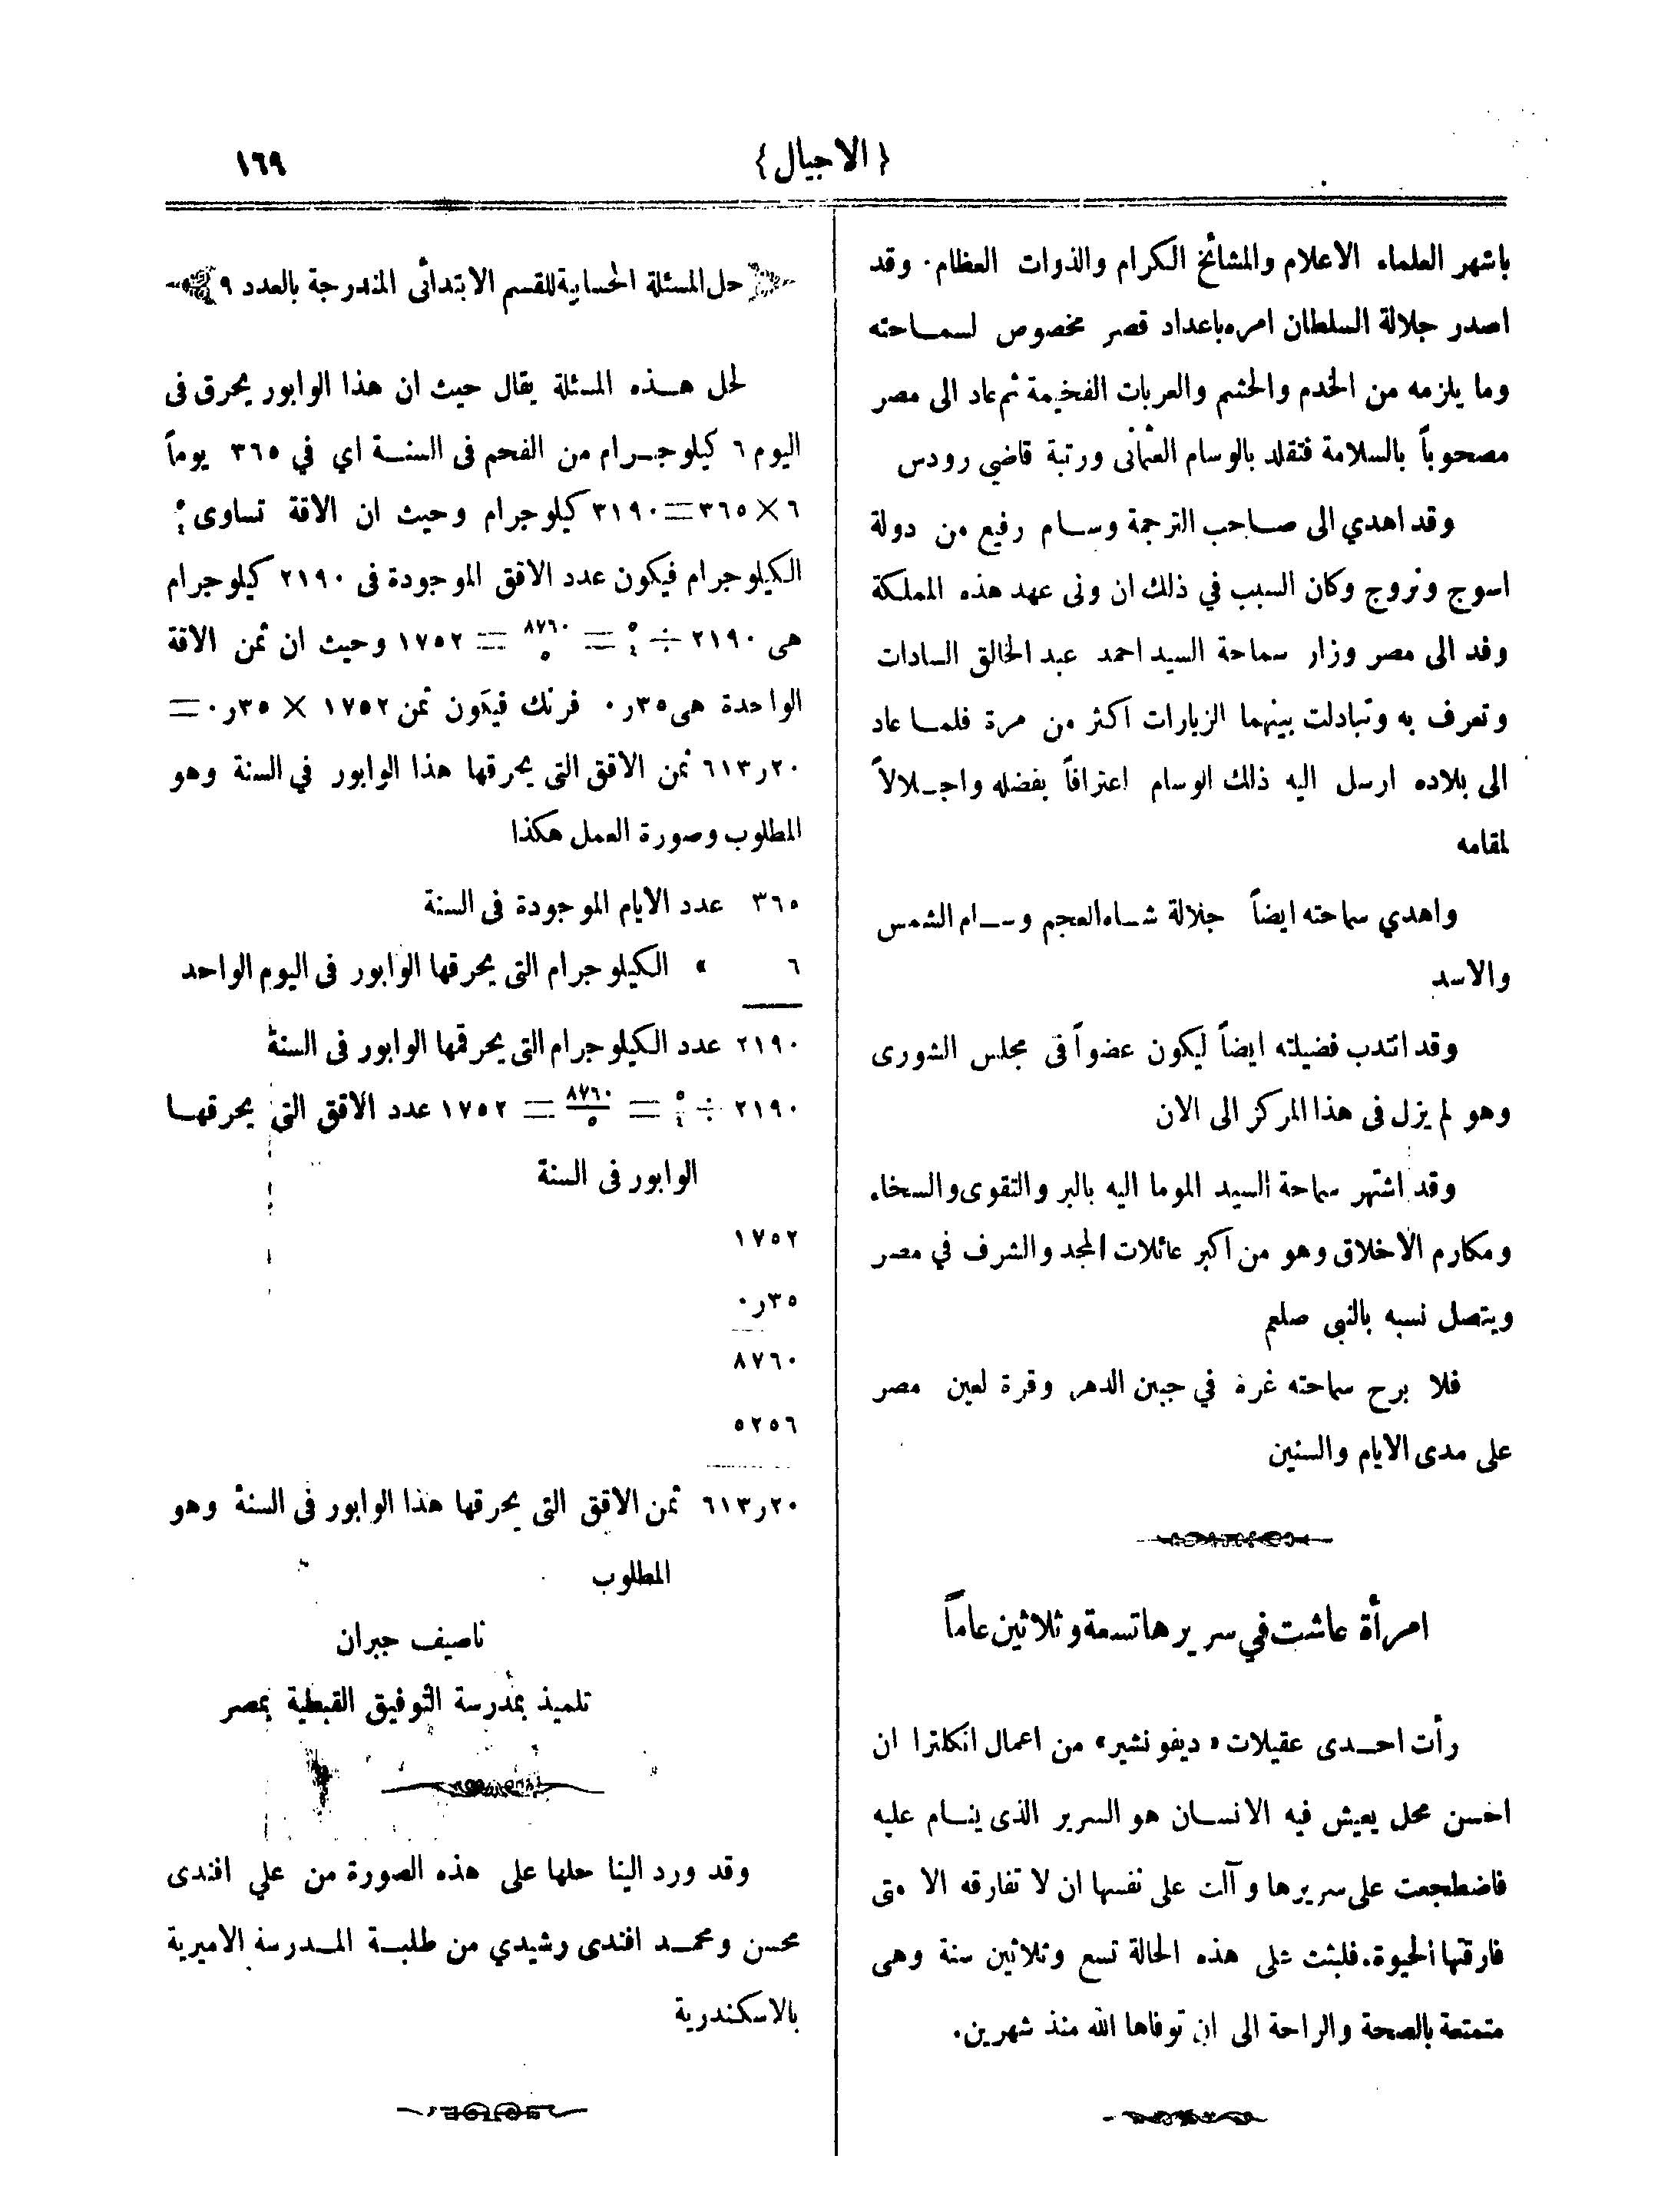 {الاجيال}
١٦٩
باشهر العلماء الاعلام والمشائخ الكرام والذوات العظام. وقد
اصدر جلالة السلطان امره باعداد قصر مخصوص لسماحته
وما يلزمه من الخدم والحشم والعربات الفخيمة ثم عاد الى مصر
مصحوباً بالسلامة فتقلد بالوسام العثمانى ورتبة قاضي رودس
وقد اهدي الى صاحب الترجمة وسام رفيع من دولة
اسوج ونروج وكان السبب في ذلك ان ولى عهد هذه المملكة
وفد الى مصر وزار سماحة السيد احمد عبد الخالق السادات
وتعرف به وتبادلت بينهما الزيارات اكثر من مرة فلما عاد
الى بلاده ارسل اليه ذلك الوسام اعترافاً بفضله واجلالاً
لمقامه
واهدي سماحته ايضاً جلالة شاه العجم وسام الشمس
والاسد
وقد انتدب فضيلته ايضاً ليكون عضواً فى مجلس الشورى
وهو لم يزل فى هذا المركز الى الان
وقد اشتهر سماحة السيد الموما اليه بالبر والتقوى والسخاء
ومكارم الاخلاق وهو من اكبر عائلات المجد والشرف في مصر
ويتصل نسبه بالنبى صلعم
فلا برح سماحته غرة في جبين الدهر وقرة لعين مصر
على مدى الايام والسنين
امرأة عاشت في سريرها تسعة وثلاثين عاماً
رأت احدى عقيلات «ديفونشير» من اعمال انكلترا ان
احسن محل يعيش فيه الانسان هو السرير الذى ينام عليه
فاضطجعت على سريرها وآلت على نفسها ان لا تفارقه الا متى
فارقتها الحيوة. فلبثت على هذه الحالة تسع وثلاثين سنة وهى
متمتعة بالصحة والراحة الى ان توفاها الله منذ شهرين.
حل المسئلة الحسابية للقسم الابتدائى المندرجة بالعدد ٩
لحل هذه المسئلة يقال حيث ان هذا الوابور يحرق فى
اليوم ٦ كيلوجرام من الفحم فى السنة اي في ٣٦٥ يوماً
٦ × ٣٦٥ = ٣١٩٠ كيلوجرام وحيث ان الاقة تساوى ٥/٤
الكيلوجرام فيكون عدد الاقق الموجودة فى ٢١٩٠ كيلوجرام
هى ٢١٩٠ ÷ ٥/٤ = ٨٧٦٠/٥ = ١٧٥٢ وحيث ان ثمن الاقة
الواحدة هى ٣٥ر٠ فرنك فيكون ثمن ١٧٥٢ × ٣٥ر٠ =
٢٠ر٦١٣ ثمن الاقق التى يحرقها هذا الوابور في السنة وهو
المطلوب وصورة العمل هكذا
٣٦٥ عدد الايام الموجودة فى السنة
٦ » الكيلوجرام التى يحرقها الوابور فى اليوم الواحد
٢١٩٠ عدد الكيلوجرام التى يحرقها الوابور فى السنة
٢١٩٠ ÷ ٥/٤ = ٨٧٦٠/٥ = ١٧٥٢ عدد الاقق التى يحرقها
الوابور فى السنة
١٧٥٢
٣٥ر٠
٨٧٦٠
٥٢٥٦
٢٠ر٦١٣ ثمن الاقق التى يحرقها هذا الوابور فى السنة وهو
المطلوب
ناصيف جبران
تلميذ بمدرسة التوفيق القبطية بمصر
وقد ورد الينا حلها على هذه الصورة من علي افندى
محسن ومحمد افندى رشيدي من طلبة المدرسة الاميرية
بالاسكندرية